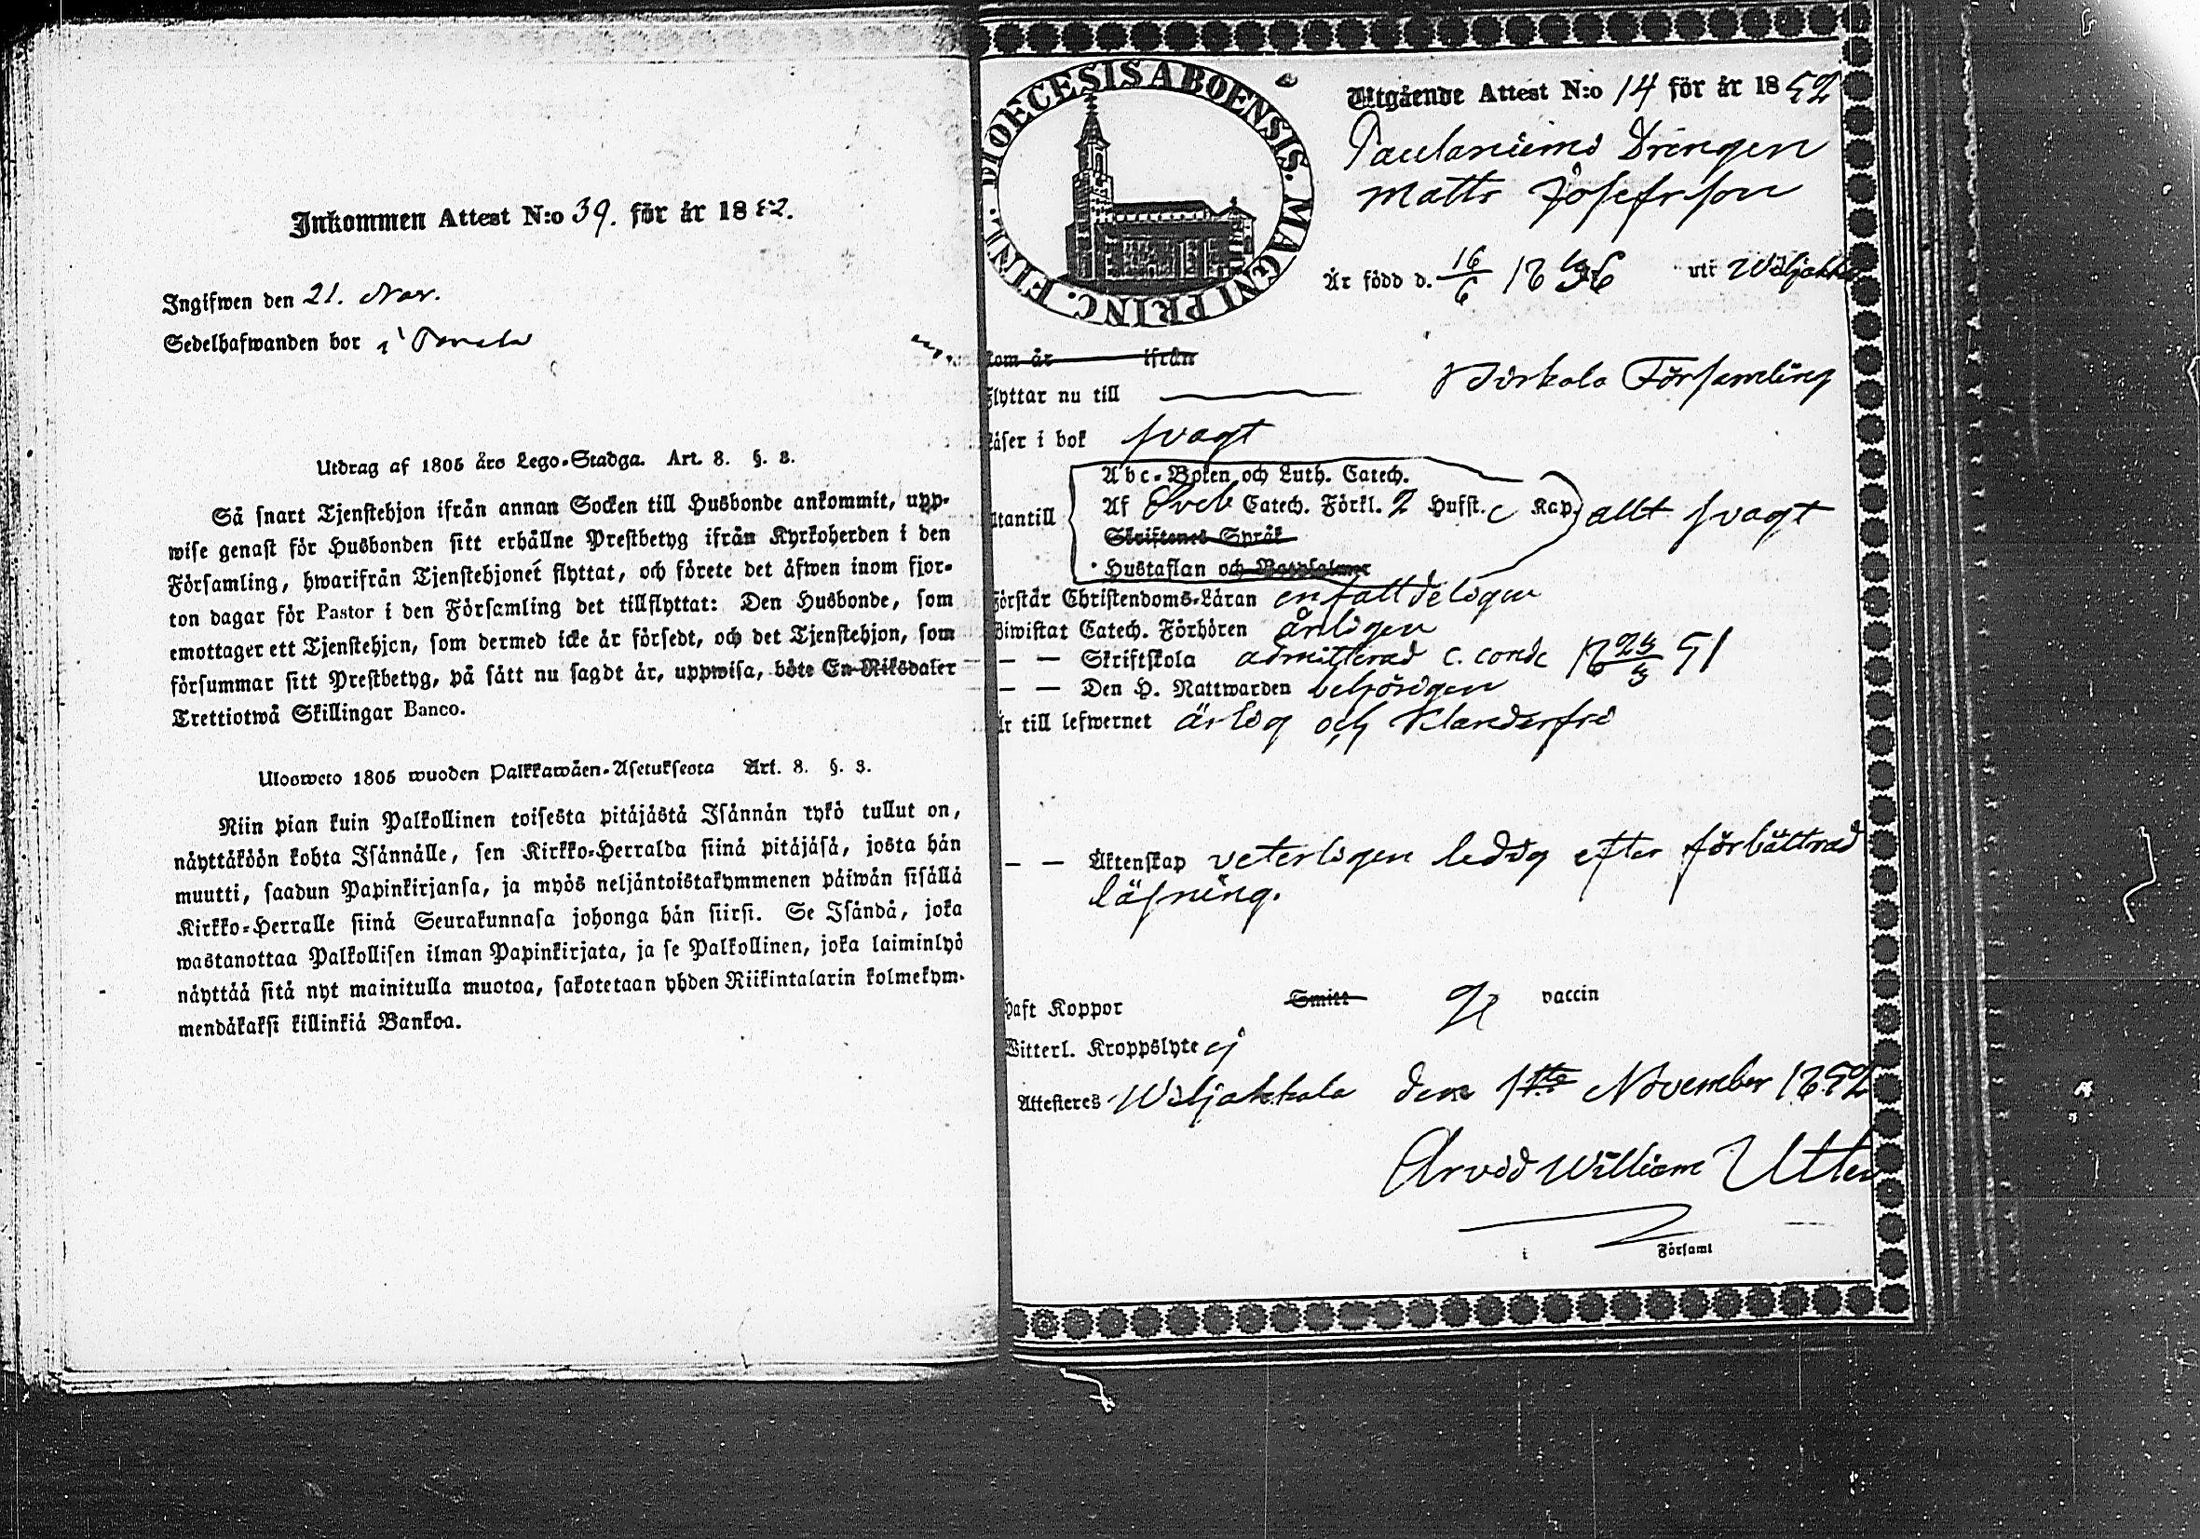 Inkommen Attest N:o 39. för år 1852.
Ingifwen den 21. Nov.
Sedelhafwanden bor i
Utdrag af 1805 års Lego-Stadga. Art. 8. §. 3.
Så snart Tjenstehjon ifrån annan Socken till Husbonde ankommit, upp-
wise genast för Husbonden sitt erhållne Prestbetyg ifrån Kyrkoherden i den
Församling, hwarifrån Tjenstehjonet flyttat, och förete det äfwen inom fjor-
ton dagar för Pastor i den Församling det tillflyttat: Den Husbonde, som
emottager ett Tjenstehjon, som dermed icke är försedt, och det Tjenstehjon, som
försummar sitt Prestbetyg, på sätt nu sagdt är, uppwisa, böte En Riksdaler
Trettiotwå Skillingar Banco.
Ulosweto 1805 wuoden Palkkawäen-Asetuksesta Art. 8. §. 3.
Niin pian kuin Palkollinen toisesta pitäjästä Isännän tykö tullut on,
näyttäköön kohta Isännälle, sen Kirkko-Herralda siinä pitäjäsä, josta hän
muutti, saadun Papinkirjansa, ja myös neljäntoistakymmenen päiwän sisällä
Kirkko-Herralle siinä Seurakunnasa johonga hän siirsi. Se Isändä, joka
wastanottaa Palkollisen ilman Papinkirjata, ja se Palkollinen, joka laiminlyö
näyttää sitä nyt mainitulla muotoa, sakotetaan yhden Riikintalarin kolmekym-
mendäkaksi killinkiä Bankoa.
DIOECESIS ABOENSIS. MAGNI PRINC. FINL.
Utgående Attest N:o 14 för år 1852
Paulaniemi Drengen
Matts Josefsson
Är född d. 16/6 1836 uti Wiljakka
kom år ifrån
Flyttar nu till Birkala Församling
Läser i bok svagt
Abc-Boken och Luth. Catech.
Utantill Af Sveb Catech. Förkl. 2 Hufst. Kap. allt svagt
Skriftenes Språk
Hustaflan och Botpsalmer
Förstår Christendoms-Läran enfalldeligen
Biwistat Catech. Förhören årligen
— — Skriftskola admitterad c. cond. 18 23/3 51
— — Den H. Nattwarden behörigen
Är till lefwernet ärlig och klanderfri
— — Äktenskap veterligen ledig efter förbättrad
läsning.
Haft Koppor Smitt vaccin
Witterl. Kroppslyte ej
Attesteres Wiljakkala den 1ste November 1852
Arvid William Utter
i Församl